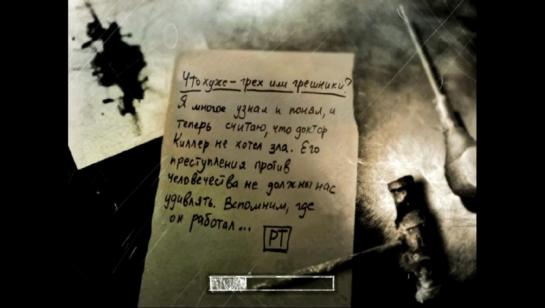 Что хуже - грех или грешники?
Я многое узнал и понял, и
теперь считаю, что доктор
Киллер не хотел зла. Его
преступления против
человечества не должны нас
удивлять. Вспомним, где
он работал...
РТ